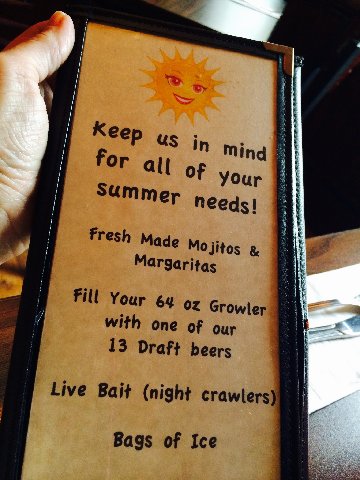 Keep us in mind
for all of your
summer needs!
Fresh Made Mojitos &
Margaritas
Fill Your 64 oz Growler
with one of our
13 Draft beers
Live Bait (night crawlers)
Bags of Ice